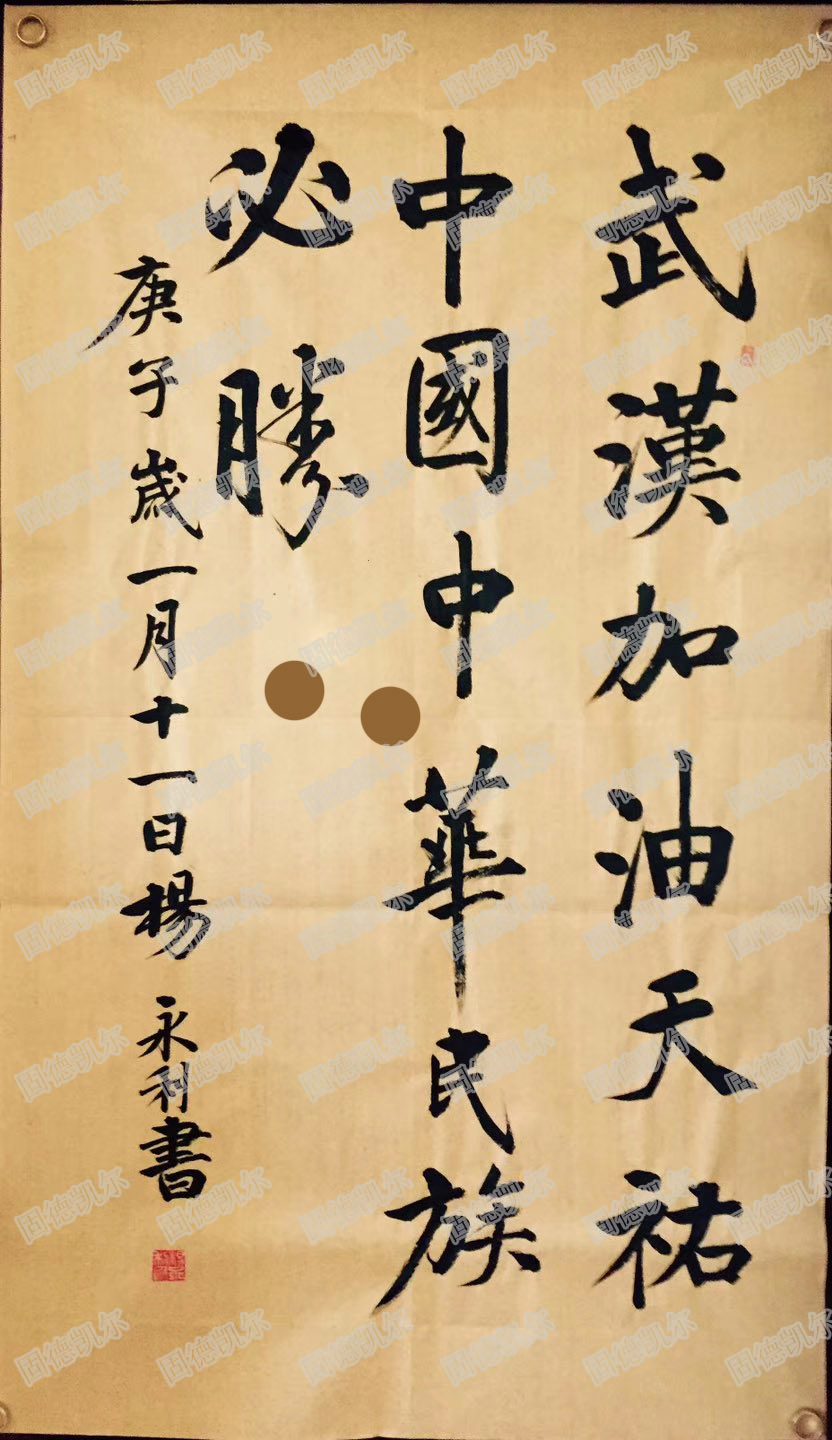 武漢加油天祐
中國中華民族
必勝
庚子歲一月十一日楊永利書
固德凯尔